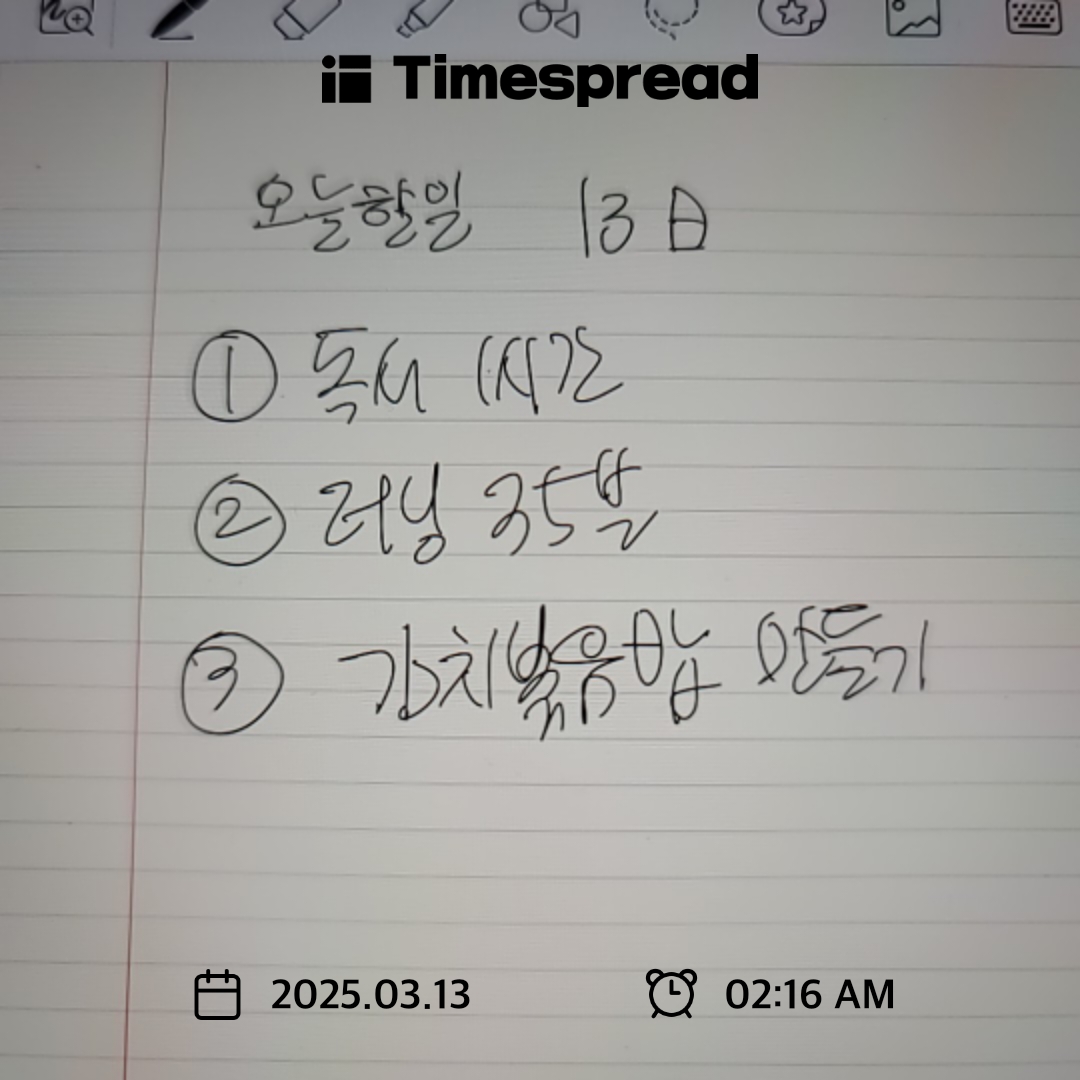 Timespread
오늘할일 13日
① 독서 1시간
② 러닝 35분
③ 김치볶음밥 만들기
2025.03.13 02:16 AM